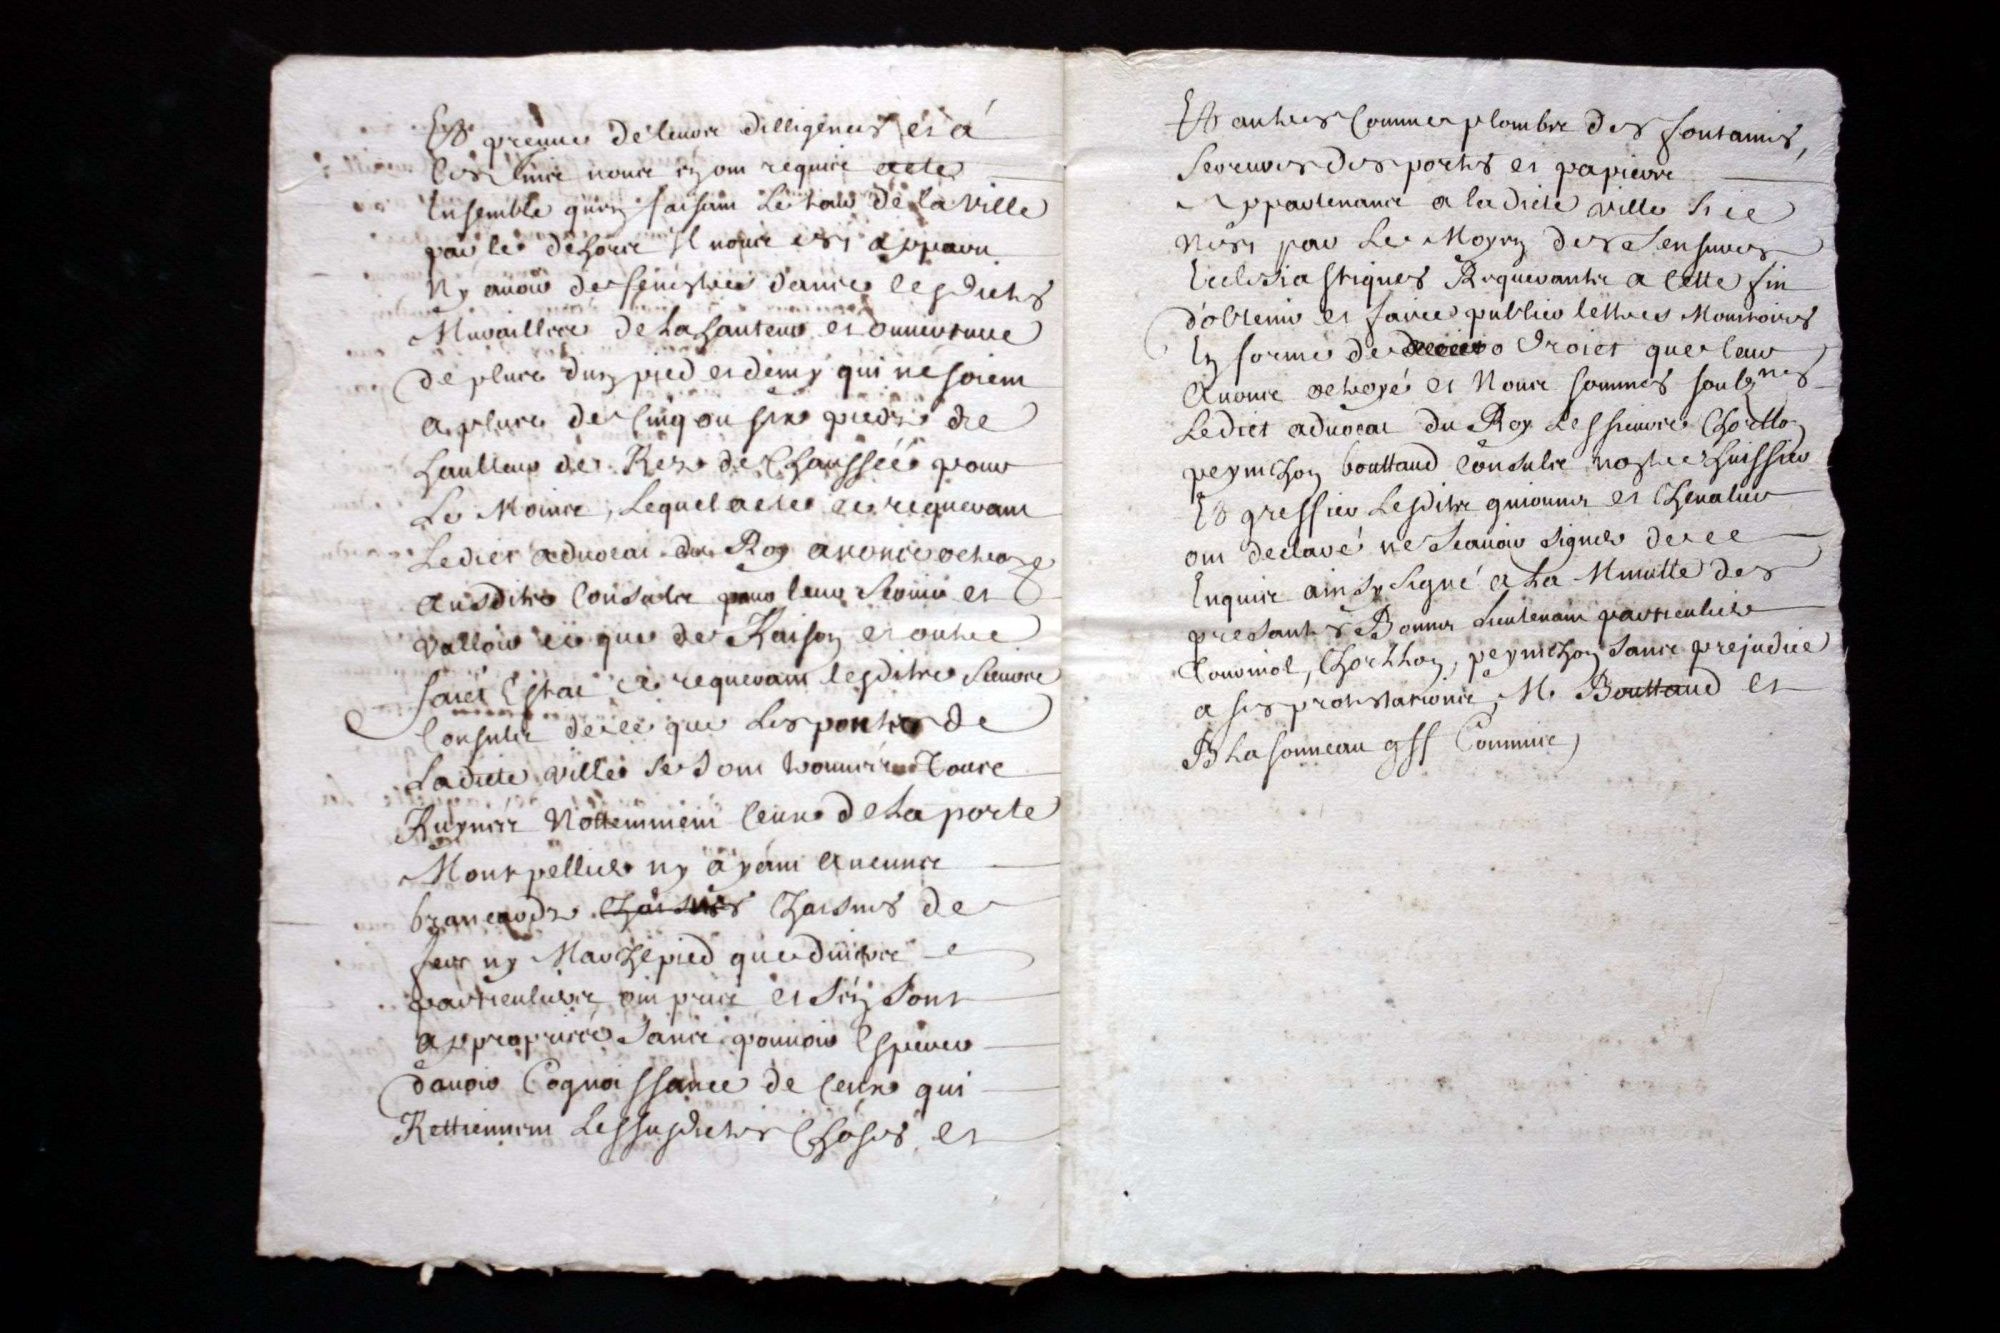 Et preuue de leurs dilligences et a
ces fins nous en ont requis acte
Ensemble qu'en faisant le tour de la ville
par le dehors Il nous est apparu
Ny auoir de fenestres dans lesdictes
Murailles de la hauteur et ouuerture
de plus d'un pied et demy qui ne soient
a plus de cinq ou six pieds de
haulteur de Rez de Chaussée pour
Le Moins, Lequel acte ce requerant
Ledict aduocat du Roy auons octroyé
ausdits Consulz pour leur seruir et
valloir ce que de Raison et outre
faict Estat ce requerant lesdits sieurs
Consulz de ce que les portes de
Ladicte ville se sont trouuées Toutes
Ruynées Nottemment celle de la porte
Montpellier ny ayant aucunes
brancards chaisnes Chaisnes de
fer ny Marchepied que diuers
particuliers ont pris et s'en sont
appropriés sans pouuoir Esperer
d'auoir Cognoissance de ceux qui
Rettiennent Lessusdictes Choses, et
Et autres Comme plombs des fontaines,
serrures des portes et papiers
Appartenants a ladicte ville si ce
N'est par le Moyen des Censures
Ecclesiastiques Requerants a cette fin
d'obtenir et faire publier lettres Monitoires
En forme de droict que leur
auons octroyé et Nous sommes soubsnes
Ledict aduocat du Roy Lessieurs Chorllon
peymchon bouttaud Consulz nostre huissier
Et greffier Lesdits guionnes et Cheualier
ont declaré ne scauoir signer de ce
Enquis ainsy signé a la Minutte des
presantes Bonnes Lieutenant particulier
Tourniol, Chorllon, peymchon sans prejudice
a ses protestations, M Bouttaud et
B Lasonneau gff Commis